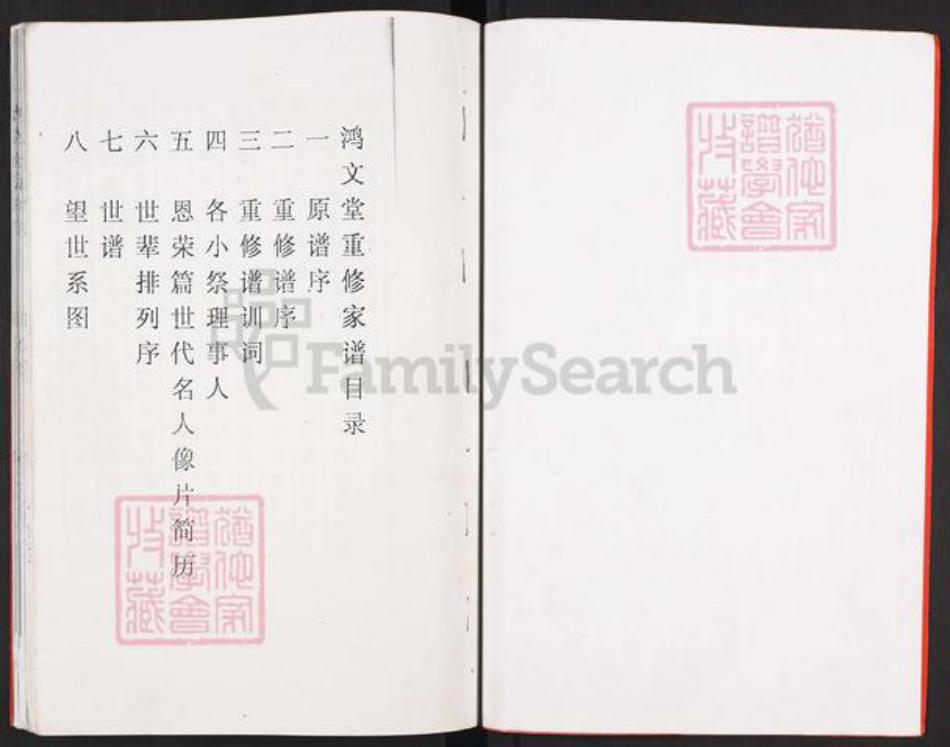 鸿文堂重修家谱目录
一 原谱序
二 重修谱序
三 重修谱训词
四 各小祭理事人
五 恩荣篇世代名人像片简历
六 世辈排列序
七 世谱
八 望世系图
FamilySearch